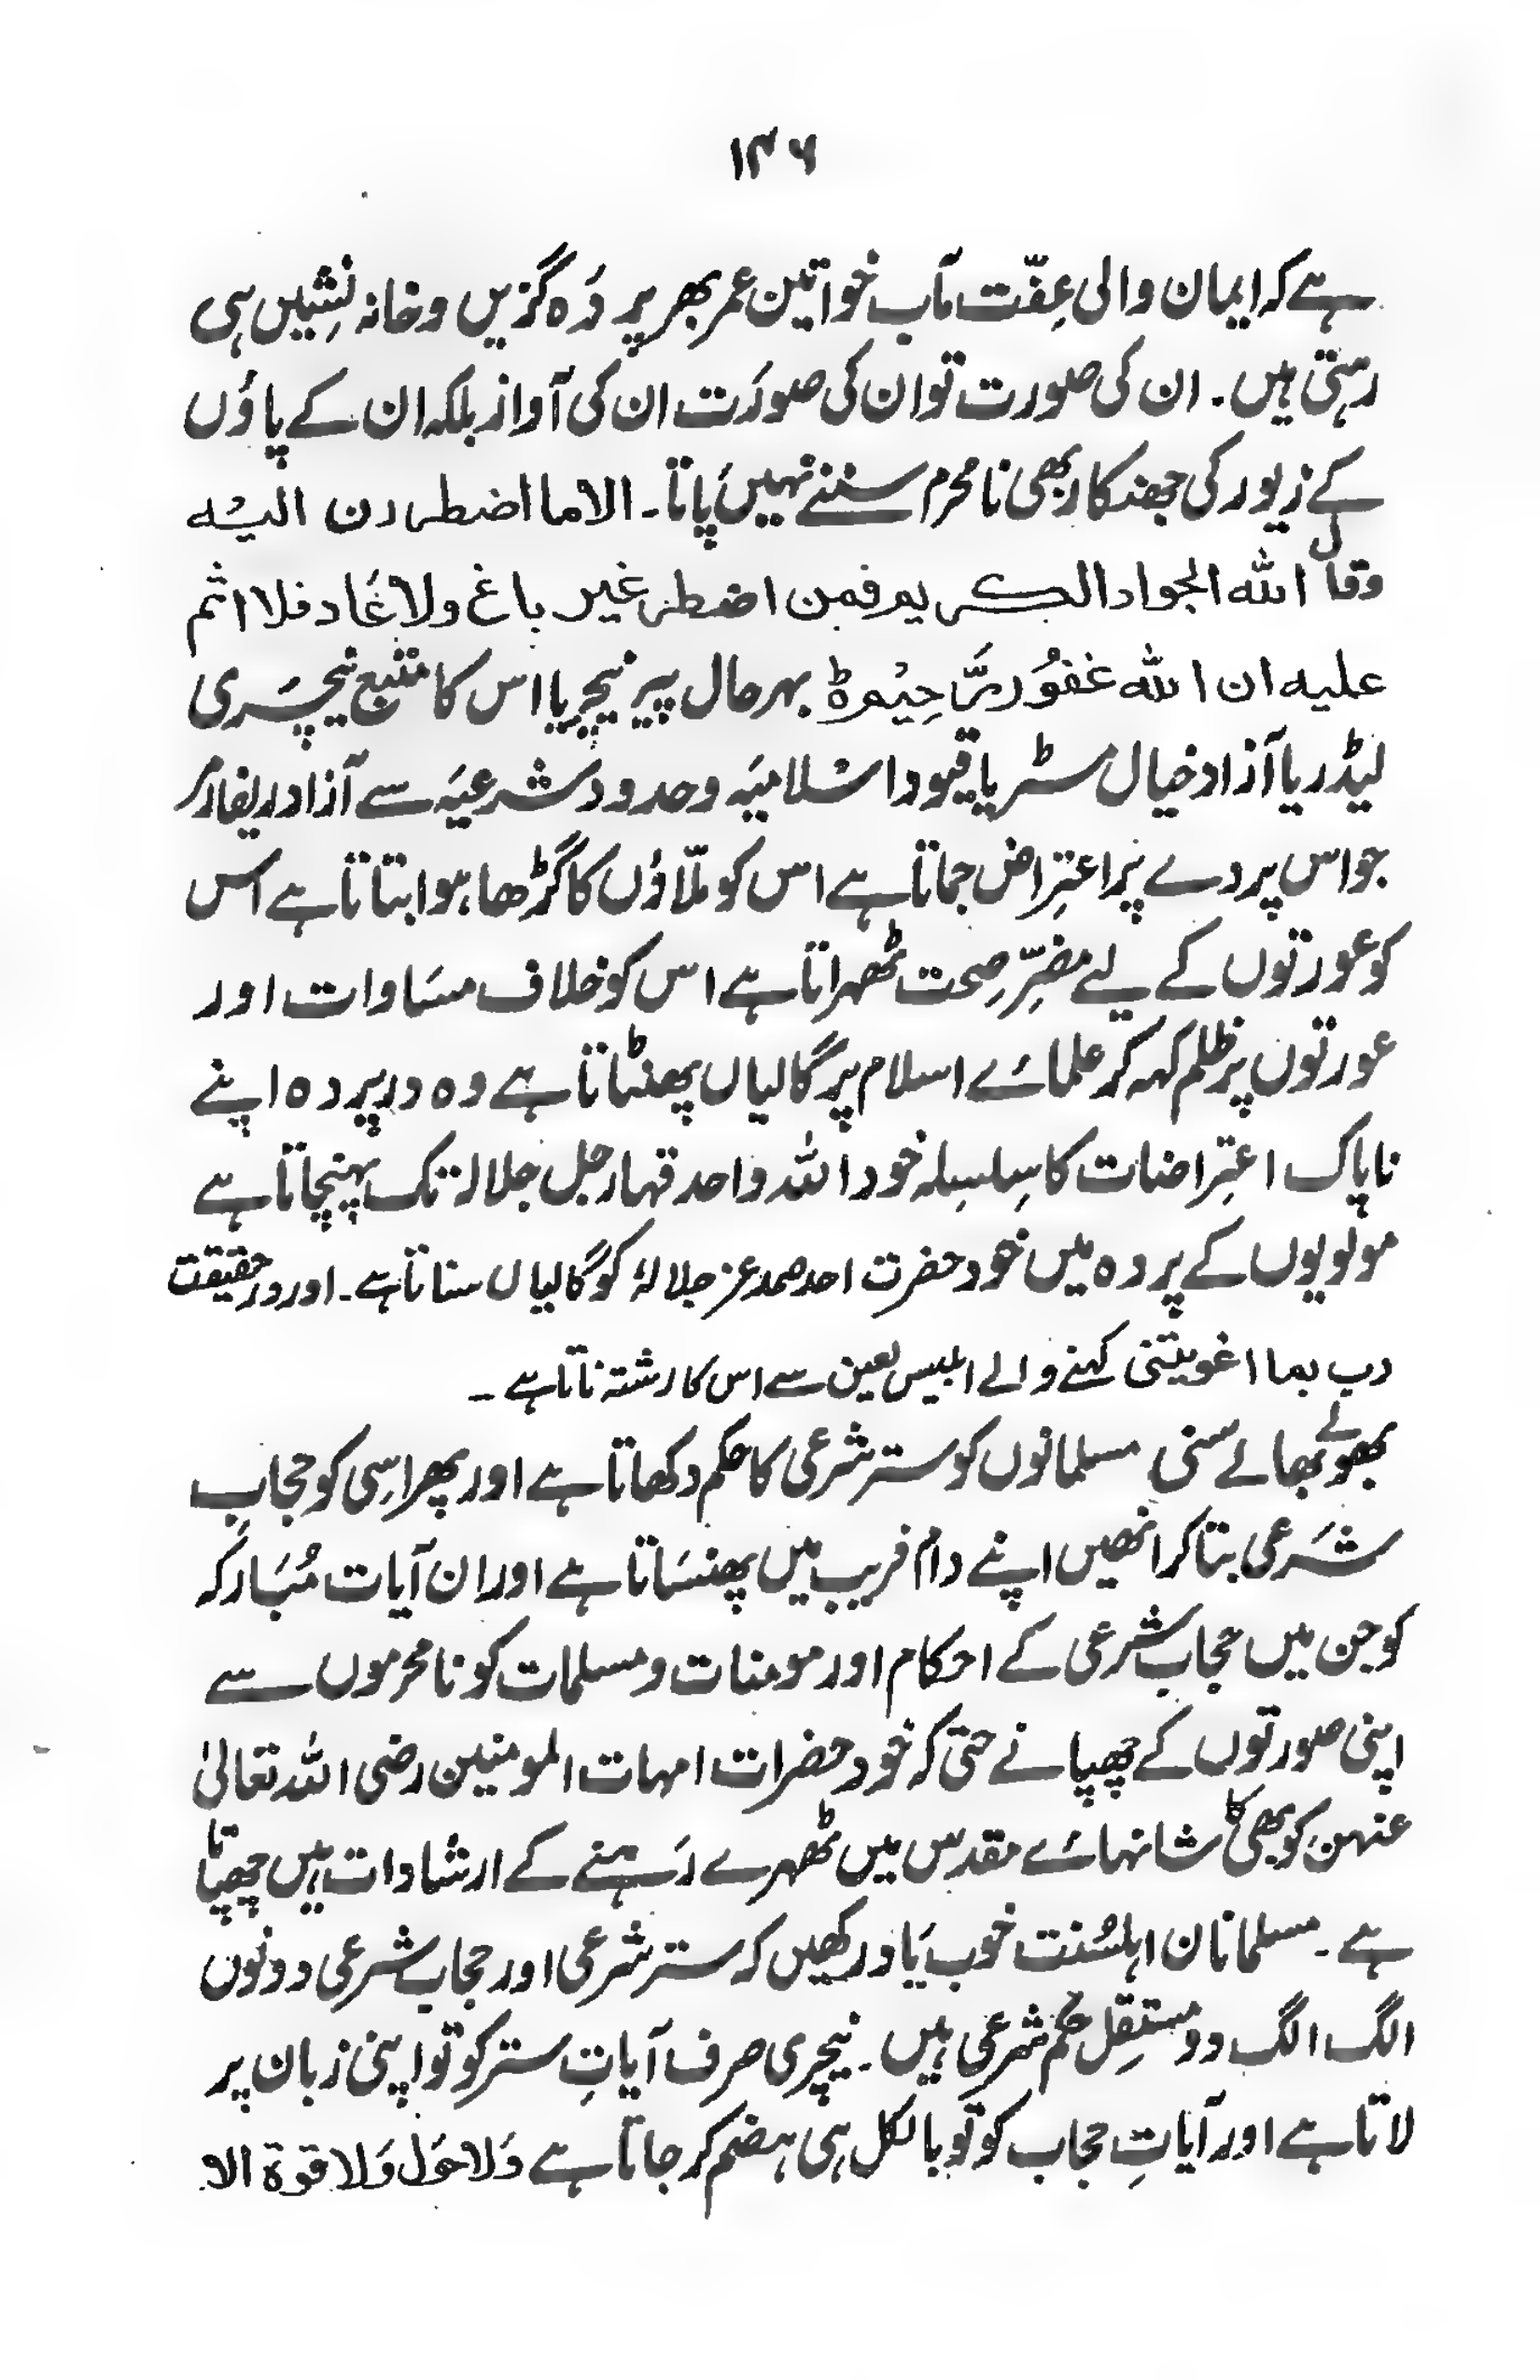 ۱۴۶
ہے کہ ایمان والی عِفّت مآب خواتین عمر بھر پردَہ گزیں و خانہ نِشِیں ہی
رہتی ہیں۔ ان کی صورت تو ان کی صورَت ان کی آواز بلکہ ان کے پاؤں
کے زیور کی جھنکار بھی نا محرم سننے نہیں پاتا۔ الاما اضطررن الیہ
وقال اللہ الجواد الکریم فمن اضطر غیر باغ ولا عَاد فلا اثم
علیہ ان اللہ غفوُر رَّحِیْمٌ ہ بہر حال پیر نیچر یا اس کا متبع نیچَری
لیڈر یا آزاد خیال مسٹر یا قیود اسْلامیَہ و حدود شرعیَہ سے آزاد ریفارمر
جو اس پردے پر اعتِراض جماتا ہے اس کو ملّاؤں کا گڑھا ہوا بتاتا ہے اس
کو عورتوں کے لیے مضِرِّ صِحت ٹھہراتا ہے اس کو خلاف مسَاوات اور
عورتوں پر ظلم کہہ کر علمائے اسلام پر گالیاں پھنٹاتا ہے وہ در پردہ اپنے
ناپاک اعتِراضات کا سِلسِلہ خود اللہ واحد قہار جل جلالہ تک پہنچاتا ہے
مولویوں کے پردہ میں خود حضرت احد صمد عز جلالہٗ کو گالیاں سناتا ہے۔ اور در حقیقت
رب بما اغویتنی کہنے والے ابلیس لعین سے اس کا رشتہ ناتا ہے ۔
بھولے بھالے سنی مسلمانوں کو ستر شرعی کا حکم دکھاتا ہے اور پھر اسِی کو حجابِ
شَرعی بتا کر انھیں اپنے دام فریب میں پھنسَاتا ہے اور ان آیات مُبَارکہ
کو جن میں حجاب شرعی کے احکام اور مومنات و مسلمات کو نا محرموں سے
اپنی صورتوں کے چھپانے حتی کہ خود حضرات امہات المومنین رضی اللہ تعالیٰ
عنہن کو بھی کا شانہائے مقدس میں ٹھہرے رَہنے کے ارشادات ہیں چھپاتا
ہے ۔ مسلمانان اہلسُنت خوب یَاد رکھیں کہ ستر شرعی اور حجاب شرعی دونوں
الگ الگ دو مستقِل حکم شرعی ہیں ۔ نیچری صرف آیاتِ ستر کو تو اپنی زبان پر
لاتا ہے اور آیاتِ حجاب کو تو بالکل ہی ہضم کر جاتا ہے وَلا حَوْل وَلا قوۃ الا